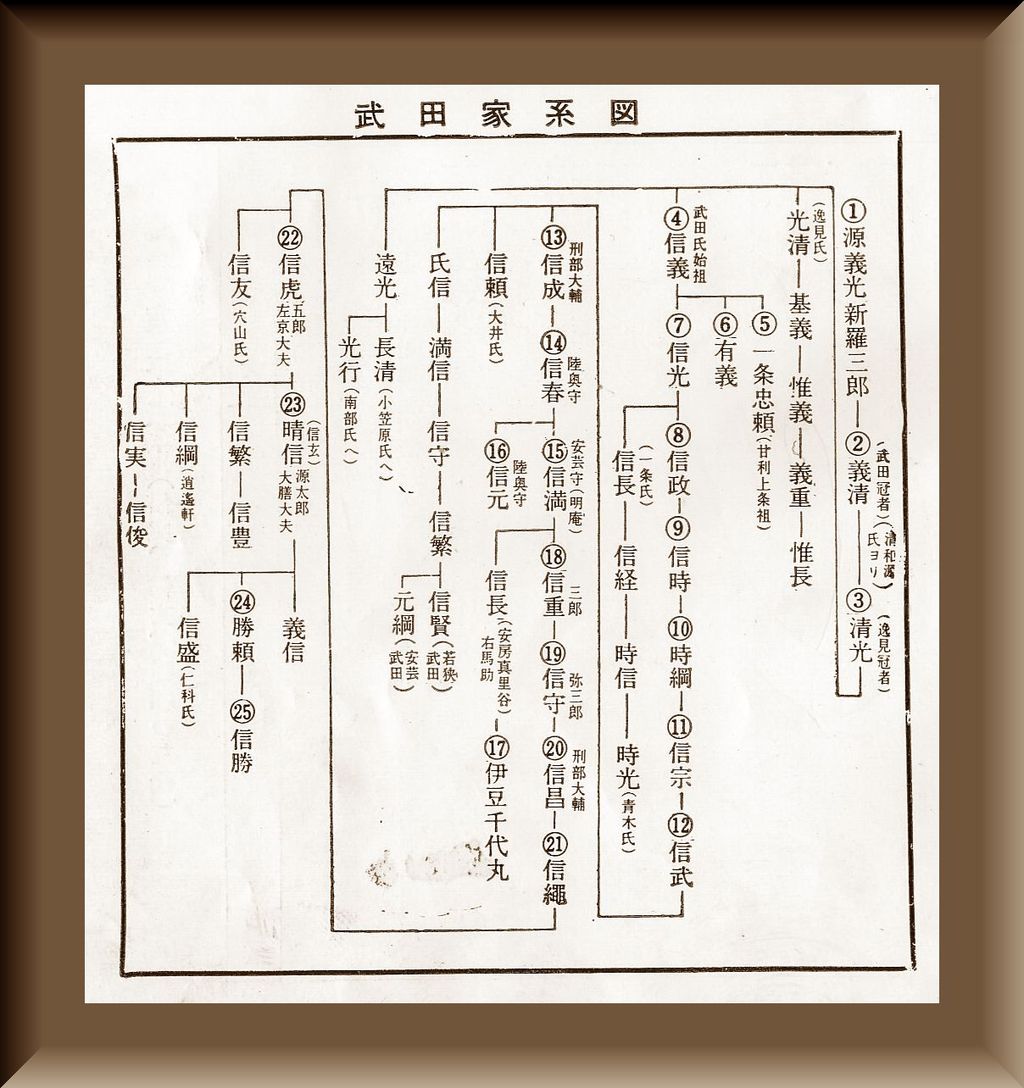 武田家系図
①源義光新羅三郎
②義清
(武田冠者)
(清和源氏ヨリ)
③清光
(逸見冠者)
(逸見氏)
光清
基義
惟義
義重
惟長
武田氏始祖
④信義
⑤一条忠頼(甘利上条祖)
⑥有義
⑦信光
⑧信政
⑨信時
⑩時綱
⑪信宗
⑫信武
(一条氏)
信長
信経
時信
時光(青木氏)
刑部大輔
⑬信成
陸奥守
⑭信春
安芸守(明庵)
⑮信満
三郎
⑱信重
弥三郎
⑲信守
刑部大輔
⑳信昌
㉑信縄
信頼(大井氏)
陸奥守
⑯信元
信長(安房真里谷)
右馬助
⑰伊豆千代丸
氏信
満信
信守
信繁
信賢(若狭武田)
元綱(安芸武田)
遠光
長清(小笠原氏へ)
光行(南部氏へ)
㉒信虎
五郎
左京大夫
信友(穴山氏)
(信玄)
㉓晴信
源太郎
大膳大夫
義信
㉔勝頼
㉕信勝
信盛(仁科氏)
信繁
信豊
信綱(逍遙軒)
信実
信俊